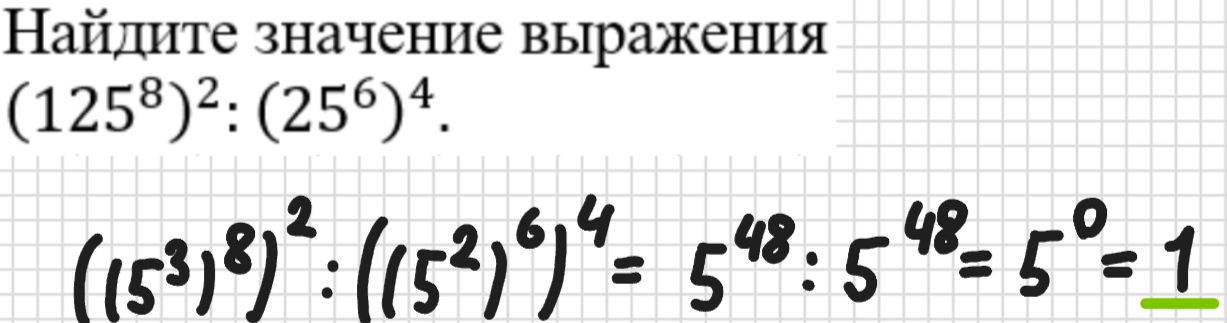 Найдите значение выражения
(125⁸)²: (25⁶)⁴.
((5³)⁸)² : ((5²)⁶)⁴ = 5⁴⁸ : 5⁴⁸ = 5⁰ = 1